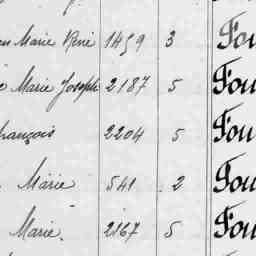 en Marie René 1459 3 Fou
Marie Joseph 2187 5 Fou
François 2204 5 Fou
Marie 541 2 Fou
Marie. 2167 5 Fou